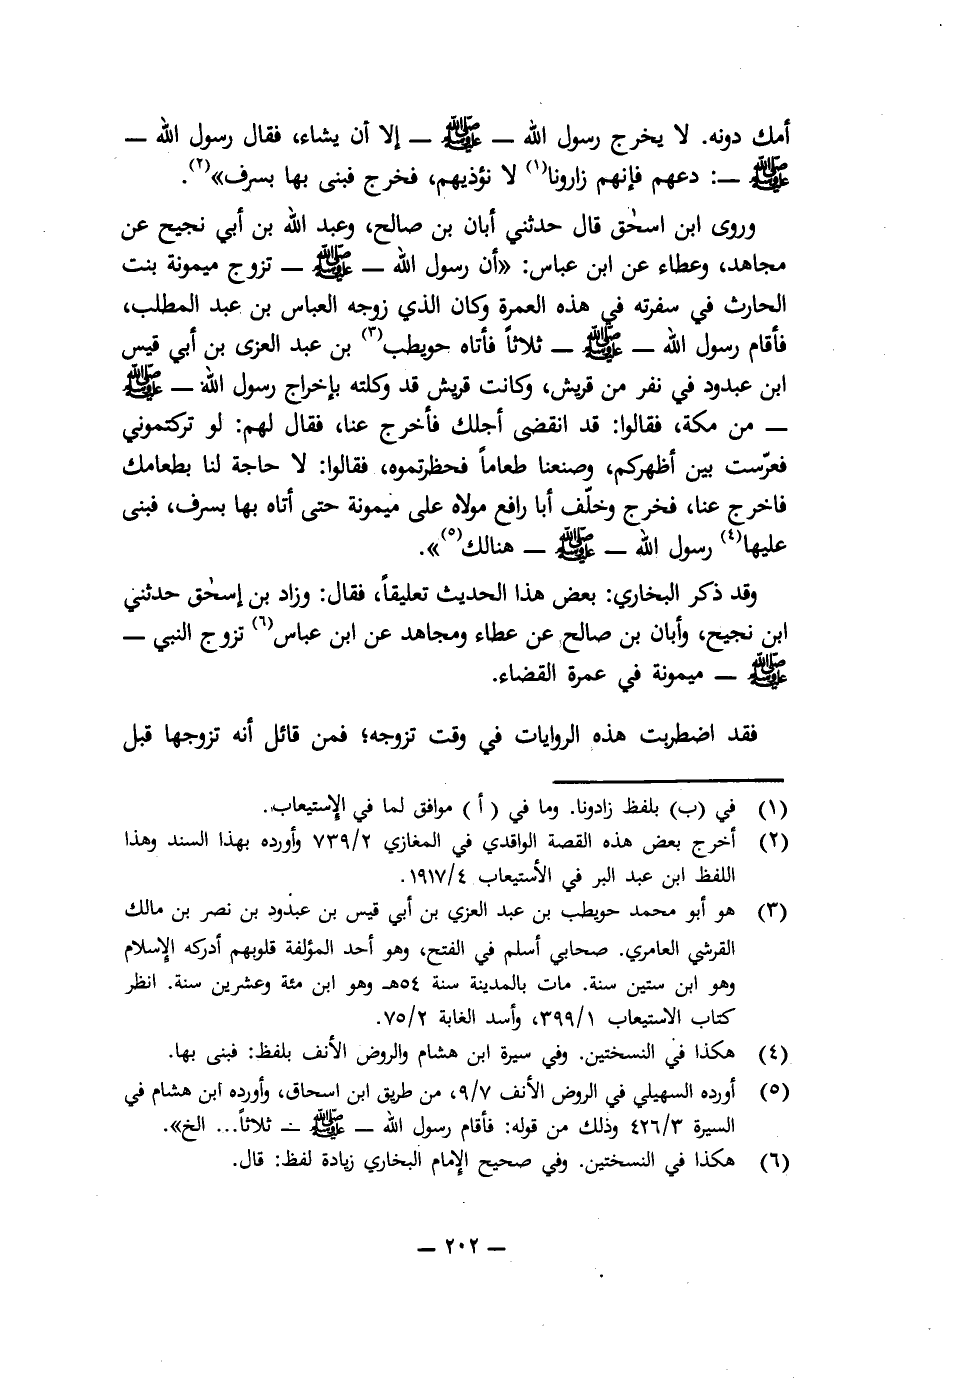 أمك دونه. لا يخرج رسول الله — ﷺ — إلا أن يشاء، فقال رسول الله —
ﷺ —: دعهم فإنهم زارونا(١) لا نؤذيهم، فخرج فبنى بها بسرف»(٢).
وروى ابن اسحٰق قال حدثني أبان بن صالح، وعبد الله بن أبي نجيح عن
مجاهد، وعطاء عن ابن عباس: «أن رسول الله — ﷺ — تزوج ميمونة بنت
الحارث في سفرته في هذه العمرة وكان الذي زوجه العباس بن عبد المطلب،
فأقام رسول الله — ﷺ — ثلاثاً فأتاه حويطب(٣) بن عبد العزى بن أبي قيس
ابن عبدود في نفر من قريش، وكانت قريش قد وكلته بإخراج رسول الله — ﷺ
— من مكة، فقالوا: قد انقضى أجلك فأخرج عنا، فقال لهم: لو تركتموني
فعرّست بين أظهركم، وصنعنا طعاماً فحظرتموه، فقالوا: لا حاجة لنا بطعامك
فاخرج عنا، فخرج وخلّف أبا رافع مولاه على ميمونة حتى أتاه بها بسرف، فبنى
عليها(٤) رسول الله — ﷺ — هنالك(٥)».
وقد ذكر البخاري: بعض هذا الحديث تعليقاً، فقال: وزاد بن إسحٰق حدثني
ابن نجيح، وأبان بن صالح عن عطاء ومجاهد عن ابن عباس(٦) تزوج النبي —
ﷺ — ميمونة في عمرة القضاء.
فقد اضطربت هذه الروايات في وقت تزوجه؛ فمن قائل أنه تزوجها قبل
(١) في (ب) بلفظ زادونا. وما في (أ) موافق لما في الإستيعاب.
(٢) أخرج بعض هذه القصة الواقدي في المغازي ٧٣٩/٢ وأورده بهذا السند وهذا
اللفظ ابن عبد البر في الأستيعاب ١٩١٧/٤.
(٣) هو أبو محمد حويطب بن عبد العزي بن أبي قيس بن عبدود بن نصر بن مالك
القرشي العامري. صحابي أسلم في الفتح، وهو أحد المؤلفة قلوبهم أدركه الإسلام
وهو ابن ستين سنة. مات بالمدينة سنة ٥٤هـ وهو ابن مئة وعشرين سنة. انظر
كتاب الاستيعاب ٣٩٩/١، وأسد الغابة ٧٥/٢.
(٤) هكذا في النسختين. وفي سيرة ابن هشام والروض الأنف بلفظ: فبنى بها.
(٥) أورده السهيلي في الروض الأنف ٩/٧، من طريق ابن اسحاق، وأورده ابن هشام في
السيرة ٤٢٦/٣ وذلك من قوله: فأقام رسول الله — ﷺ — ثلاثاً... الخ».
(٦) هكذا في النسختين. وفي صحيح الإمام البخاري زيادة لفظ: قال.
— ٢٠٢ —